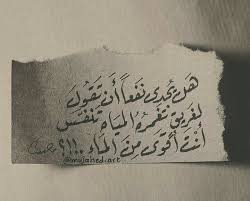 هَل يُجدِي نَفعاً أَن تَقُولَ
لِغَرِيقٍ تَغمُرُهُ المِيَاه تَنَفَّس
أَنتَ أَقوَى مِنَ المَاء ...!؟
@mujahed.art